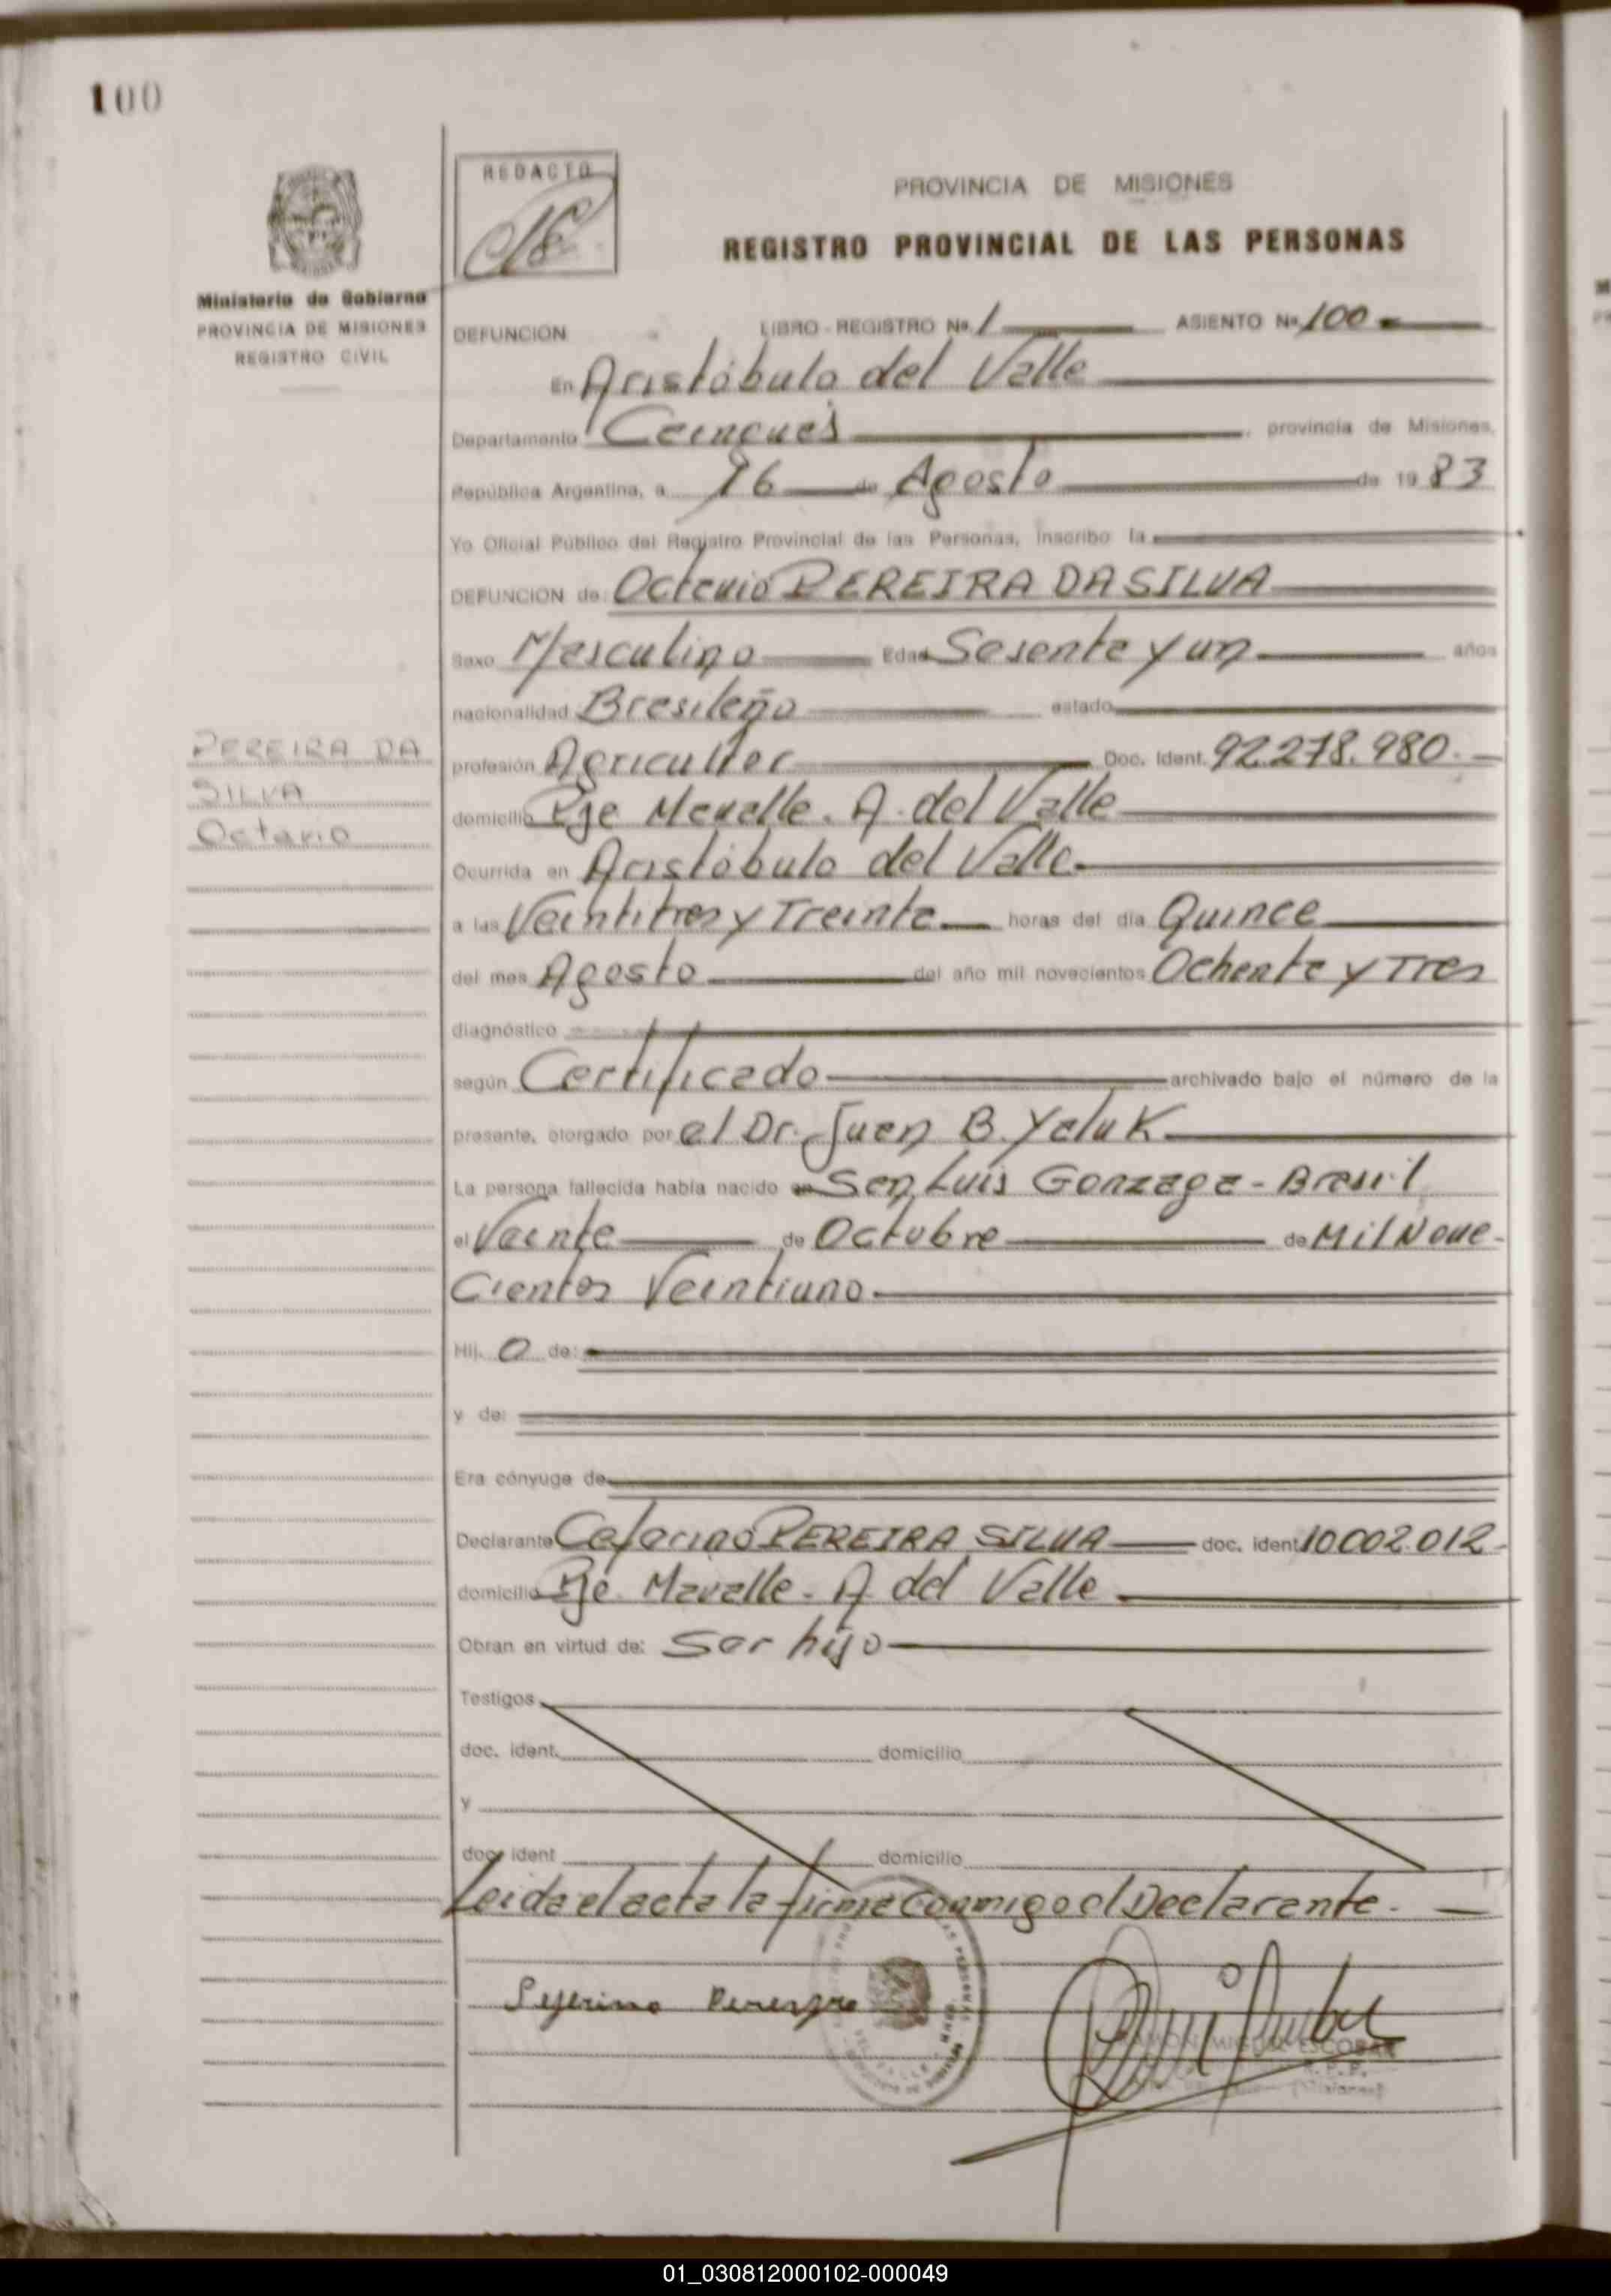 100
REDACTO
PROVINCIA DE MISIONES
REGISTRO PROVINCIAL DE LAS PERSONAS
Ministerio de Gobierno
PROVINCIA DE MISIONES
REGISTRO CIVIL
DEFUNCIÓN LIBRO - REGISTRO Nº 1 ASIENTO Nº 100
En Aristóbulo del Valle
Departamento Cainguás, provincia de Misiones,
República Argentina, a 16 de Agosto de 1983
Yo Oficial Público del Registro Provincial de las Personas, inscribo la
DEFUNCION de: Octavio PEREIRA DA SILVA
Sexo Masculino Edad Sesenta y un años
nacionalidad Brasileña estado
PEREIRA DA
SILVA
Octavio
profesión Agricultor Doc. Ident. 92.278.980.
domicilio Pje Mavalle. A. del Valle
Ocurrida en Aristóbulo del Valle.
a las Veintitres y Treinta horas del día Quince
del mes Agosto del año mil novecientos Ochenta y Tres
diagnóstico
según Certificado archivado bajo el número de la
presente, otorgado por el Dr. Juan B. Yaluk
La persona fallecida había nacido en San Luis Gonzaga - Brasil
el Veinte de Octubre de Mil Nove-
cientos Veintiuno.
Hij o de:
y de:
Era cónyuge de
Declarante Ceferino PEREIRA SILVA doc. ident. 10.002.012
domicilio Pje. Mavalle - A. del Valle
Obran en virtud de: Ser hijo
Testigos
doc. ident. domicilio
y
doc. ident domicilio
Leida el acta la firma conmigo el Declarante.
RAMON MIGUEL ESCOBAR
01_030812000102-000049